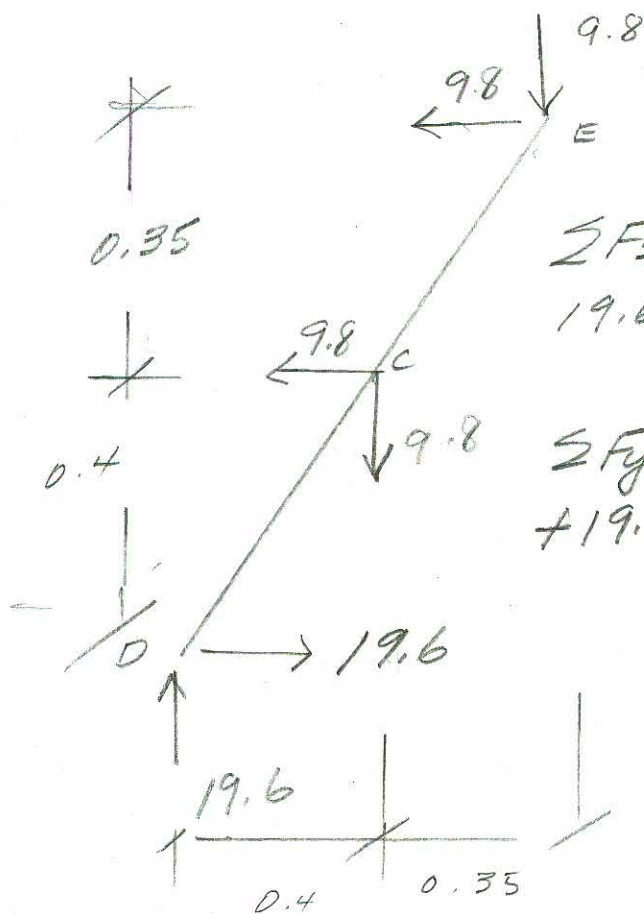 9.8
9.8
E
0.35
ΣF
19.6
9.8
C
0.4
9.8
ΣFy
+19.
D
19.6
19.6
0.4
0.35